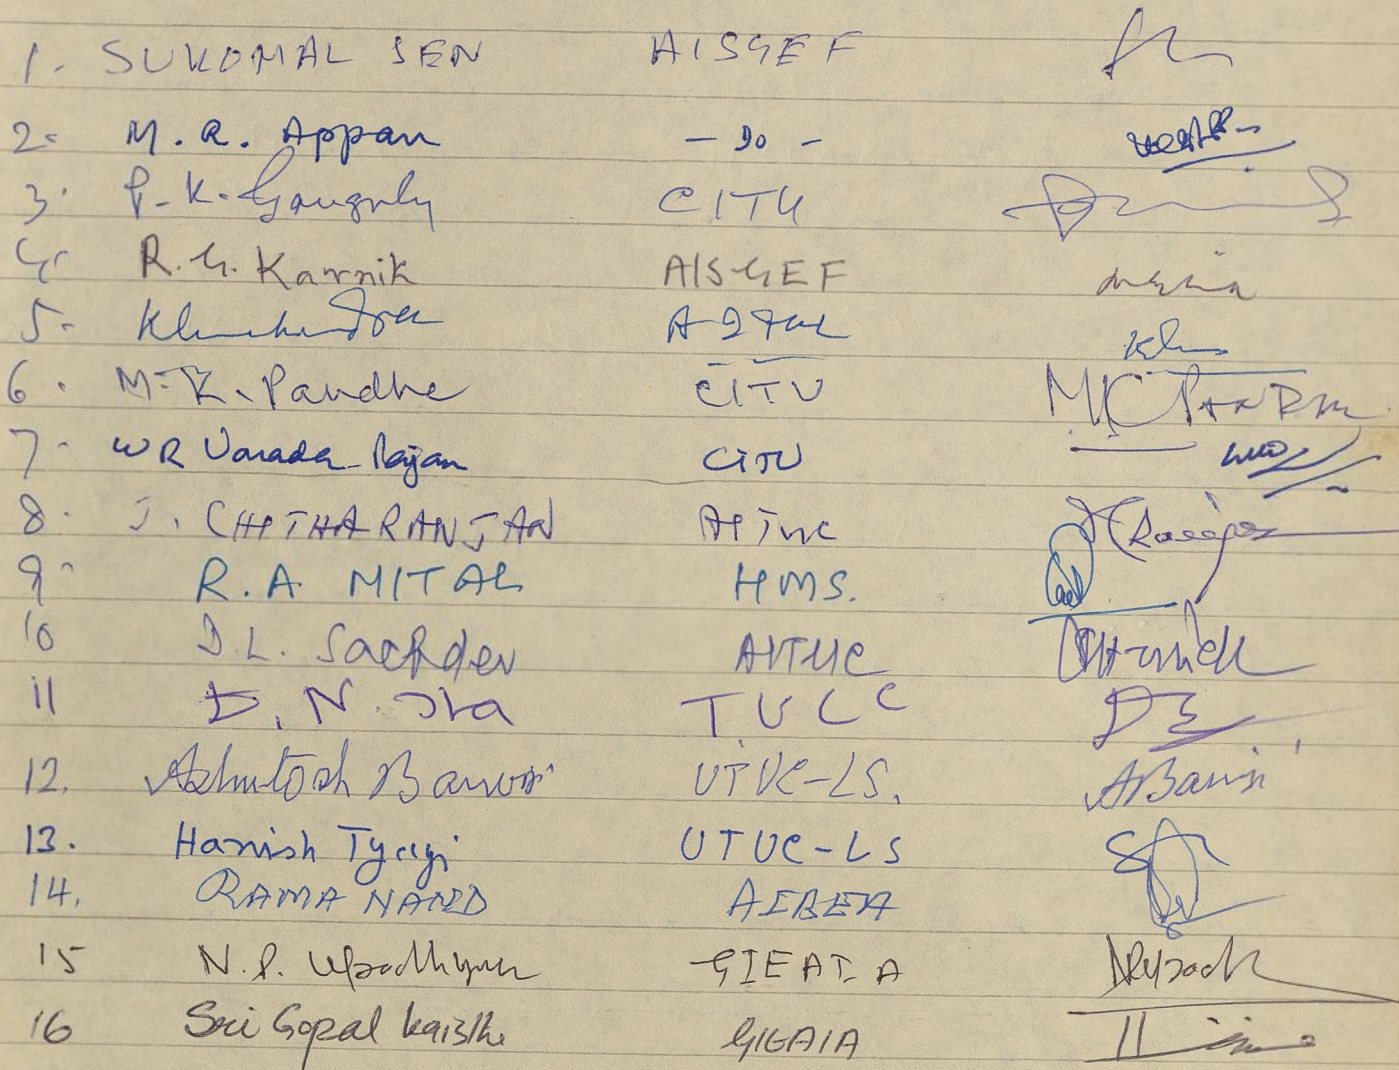 1. SUKOMAL SEN AISGEF
2. M. R. Appan - Do -
3. P. K. Ganguly CITU
4. R. G. Karnik AISGEF
5. AITUC
6. M. K. Pandhe CITU M K PANDHE
7. WR Varada Rajan CITU
8. J. CHITHARANJAN AITUC
9. R. A MITAL HMS.
10 D. L. Sachdev AITUC
11 D. N. Jha T.U C C
12. Ashutosh Banerji UTUC-LS. ABanerji
13. Harish Tyagi UTUC-LS
14. RAMA NAND AIBEA
15 N. P. Upadhyay GIEAIA
16 Sri Gopal GIEAIA